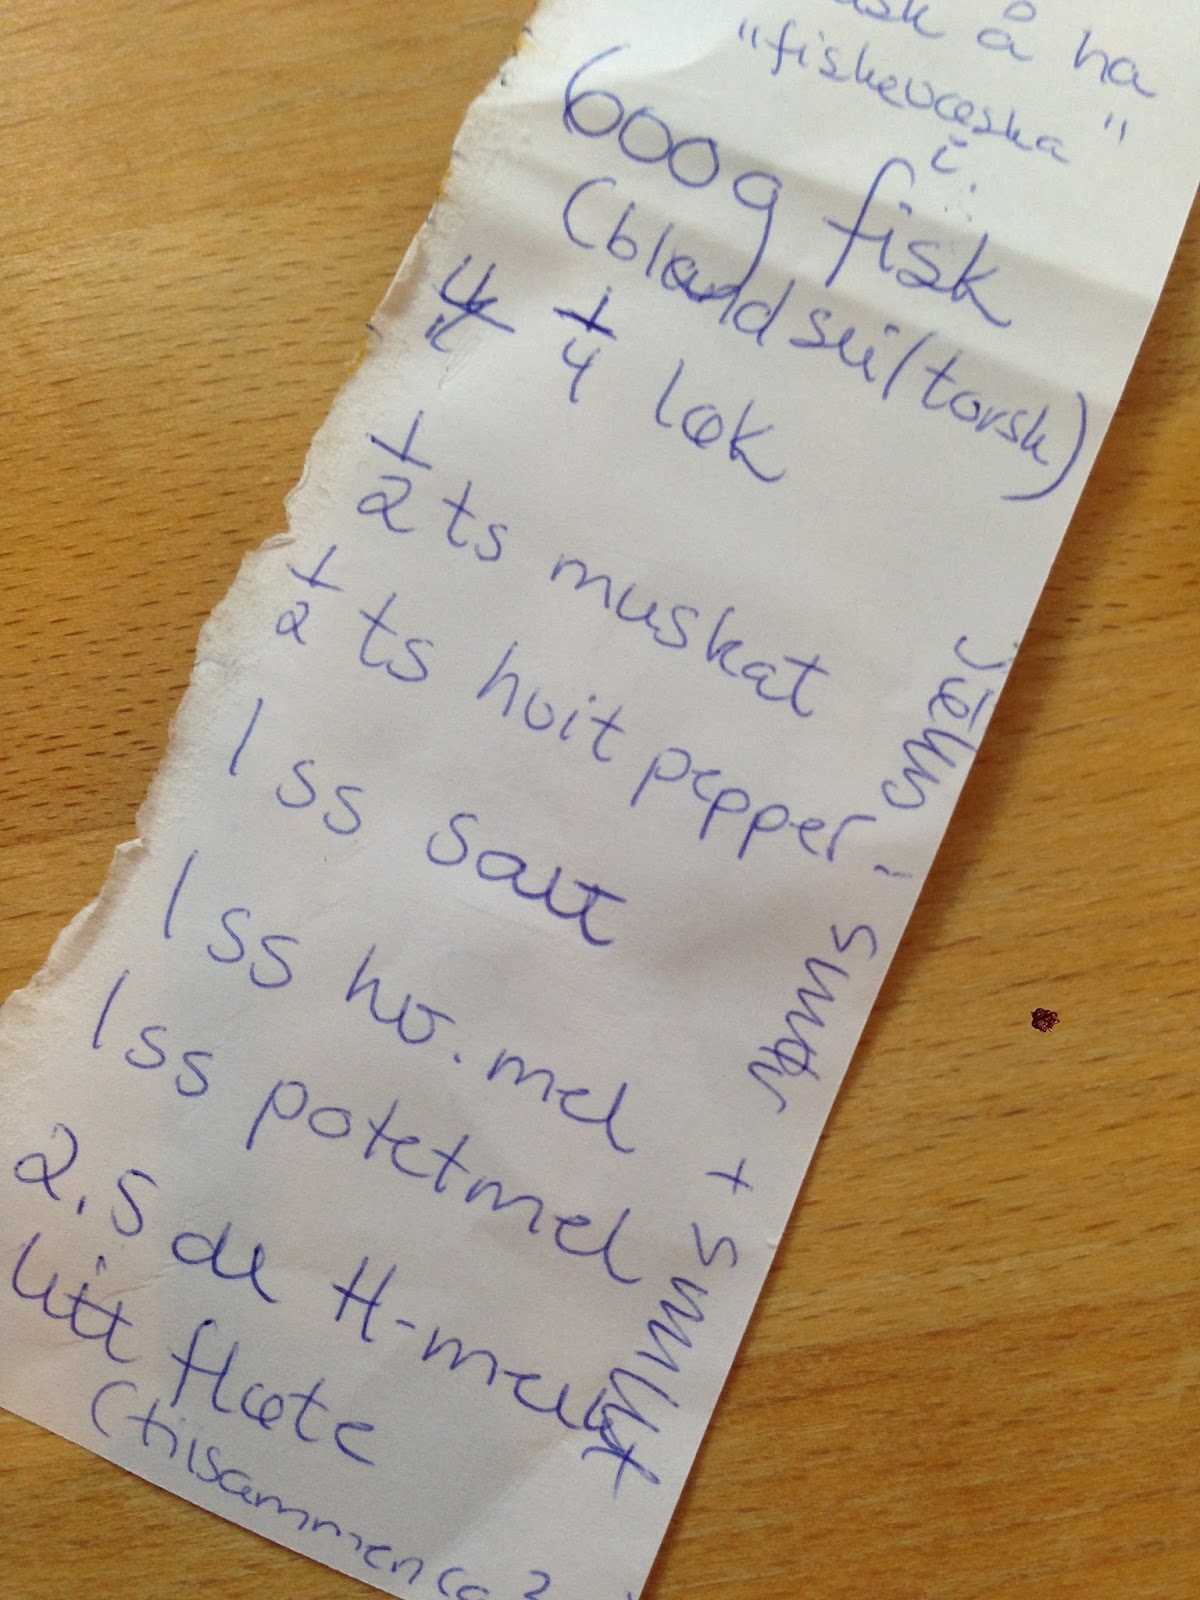 usk å ha
"fiskevæska"
i.
600 g fisk
(bland sei/torsk)
1/4 løk
1/2 ts muskat
1/2 ts hvit pepper
1 ss salt
1 ss hv.mel
1 ss potetmel
2.5 dl H-melk
litt fløte
(tilsammen ca 3
i smør + smult